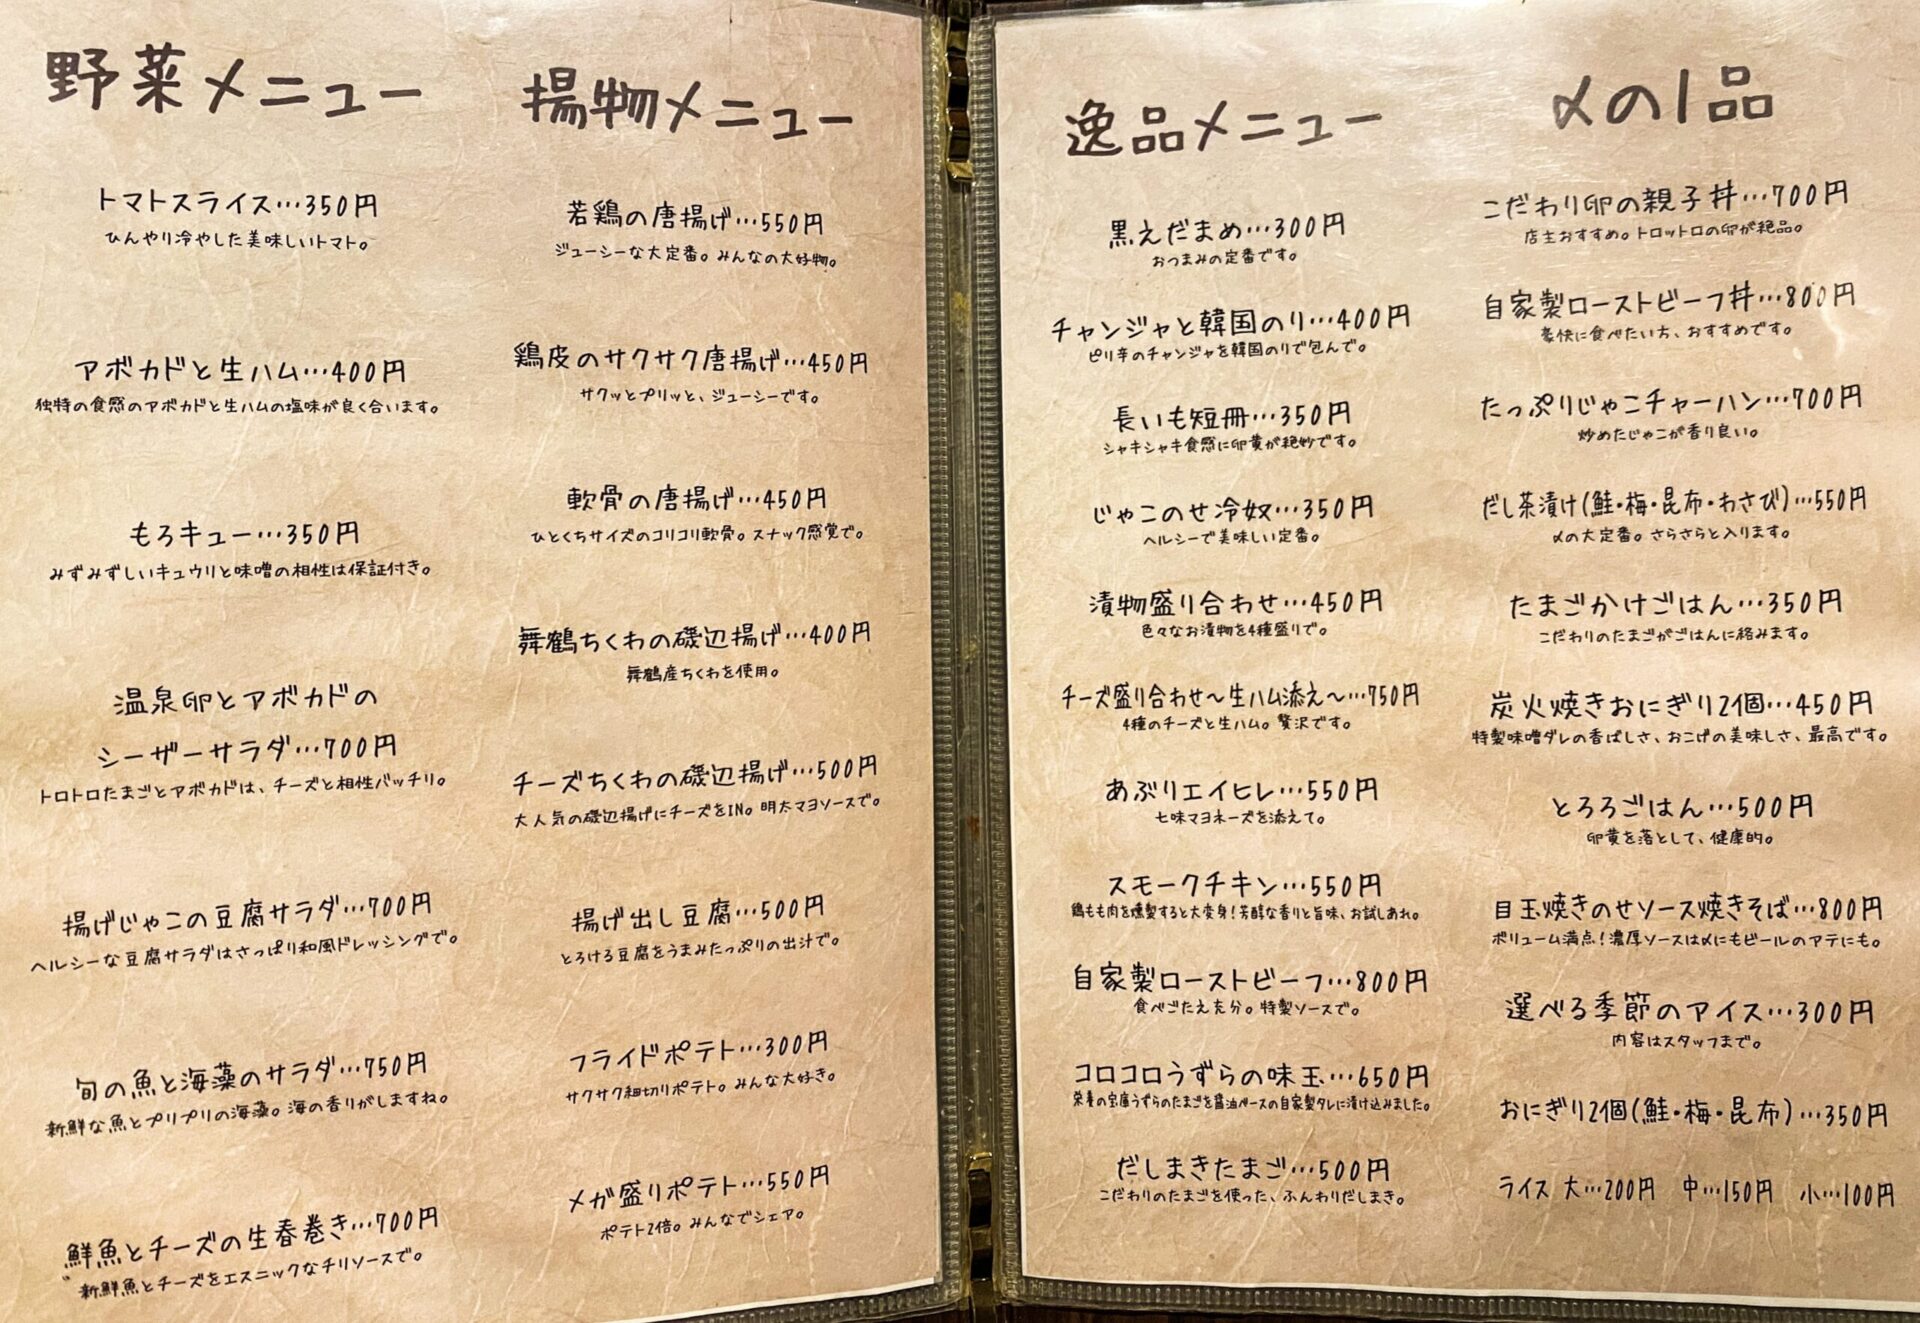 野菜メニュー
トマトスライス…350円
ひんやり冷やした美味しいトマト。
アボカドと生ハム…400円
独特の食感のアボカドと生ハムの塩味が良く合います。
もろキュー…350円
みずみずしいキュウリと味噌の相性は保証付き。
温泉卵とアボカドの
シーザーサラダ…700円
トロトロたまごとアボカドは、チーズと相性バッチリ。
揚げじゃこの豆腐サラダ…700円
ヘルシーな豆腐サラダはさっぱり和風ドレッシングで。
旬の魚と海藻のサラダ…750円
新鮮な魚とプリプリの海藻。海の香りがしますね。
鮮魚とチーズの生春巻き…700円
新鮮魚とチーズをエスニックなチリソースで。
揚物メニュー
若鶏の唐揚げ…550円
ジューシーな大定番。みんなの大好物。
鶏皮のサクサク唐揚げ…450円
サクッとプリッと、ジューシーです。
軟骨の唐揚げ…450円
ひとくちサイズのコリコリ軟骨。スナック感覚で。
舞鶴ちくわの磯辺揚げ…400円
舞鶴産ちくわを使用。
チーズちくわの磯辺揚げ…500円
大人気の磯辺揚げにチーズをIN。明太マヨソースで。
揚げ出し豆腐…500円
とろける豆腐をうまみたっぷりの出汁で。
フライドポテト…300円
サクサク細切りポテト。みんな大好き。
メガ盛りポテト…550円
ポテト2倍。みんなでシェア。
逸品メニュー
黒えだまめ…300円
おつまみの定番です。
チャンジャと韓国のり…400円
ピリ辛のチャンジャを韓国のりで包んで。
長いも短冊…350円
シャキシャキ食感に卵黄が絶妙です。
じゃこのせ冷奴…350円
ヘルシーで美味しい定番。
漬物盛り合わせ…450円
色々なお漬物を4種盛りで。
チーズ盛り合わせ～生ハム添え～…750円
4種のチーズと生ハム。贅沢です。
あぶりエイヒレ…550円
七味マヨネーズを添えて。
スモークチキン…550円
鶏もも肉を燻製すると大変身！芳醇な香りと旨味、お試しあれ。
自家製ローストビーフ…800円
食べごたえ充分。特製ソースで。
コロコロうずらの味玉…650円
栄養の宝庫うずらのたまごを醤油ベースの自家製タレに漬け込みました。
だしまきたまご…500円
こだわりのたまごを使った、ふんわりだしまき。
〆の1品
こだわり卵の親子丼…700円
店主おすすめ。トロットロの卵が絶品。
自家製ローストビーフ丼…800円
豪快に食べたい方、おすすめです。
たっぷりじゃこチャーハン…700円
炒めたじゃこが香り良い。
だし茶漬け(鮭・梅・昆布・わさび)…550円
〆の大定番。さらさらと入ります。
たまごかけごはん…350円
こだわりのたまごがごはんに絡みます。
炭火焼きおにぎり2個…450円
特製味噌ダレの香ばしさ、おこげの美味しさ、最高です。
とろろごはん…500円
卵黄を落として、健康的。
目玉焼きのせソース焼きそば…800円
ボリューム満点！濃厚ソースは〆にもビールのアテにも。
選べる季節のアイス…300円
内容はスタッフまで。
おにぎり2個(鮭・梅・昆布)…350円
ライス 大…200円 中…150円 小…100円